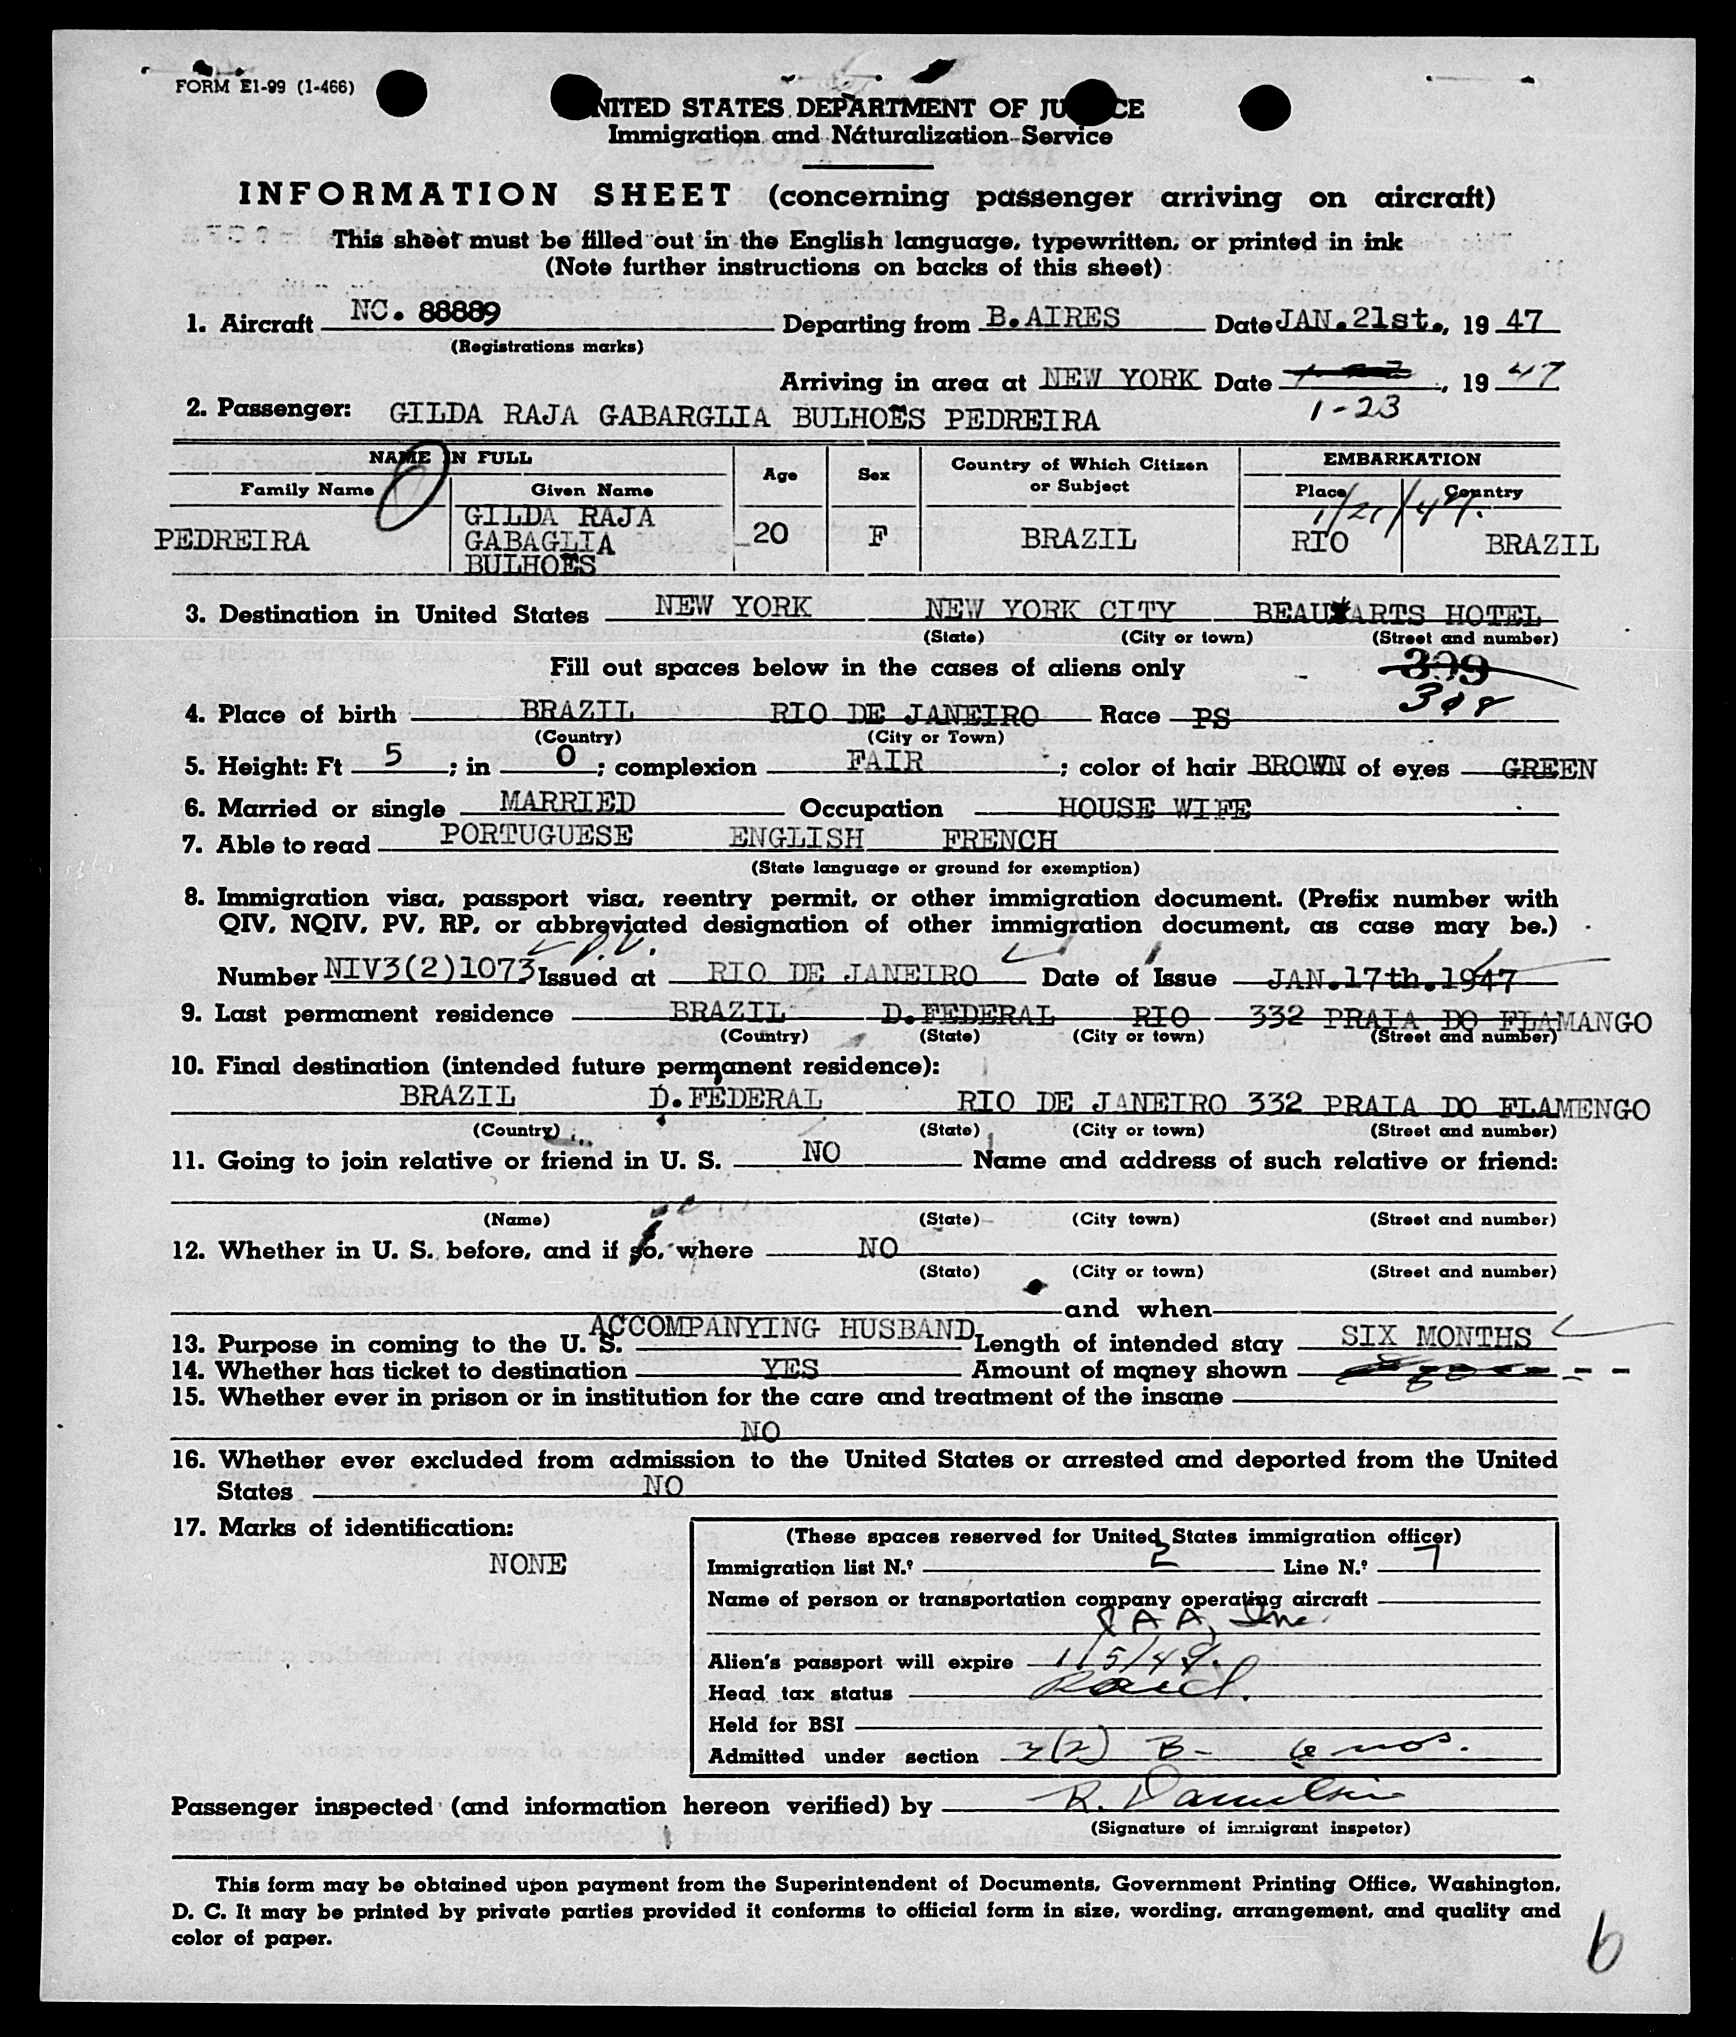 FORM E1-99 (1-466)
UNITED STATES DEPARTMENT OF JUSTICE
Immigration and Naturalization Service
INFORMATION SHEET (concerning passenger arriving on aircraft)
This sheet must be filled out in the English language, typewritten, or printed in ink
(Note further instructions on backs of this sheet)
1. Aircraft NC. 88889 Departing from B.AIRES Date JAN.21st., 19 47
(Registrations marks)
Arriving in area at NEW YORK Date , 19 47
2. Passenger: GILDA RAJA GABARGLIA BULHOES PEDREIRA 1-23
NAME IN FULL Age Sex Country of Which Citizen or Subject EMBARKATION
Family Name Given Name Place Country
1/21/47.
PEDREIRA GILDA RAJA GABAGLIA BULHOES 20 F BRAZIL RIO BRAZIL
3. Destination in United States NEW YORK NEW YORK CITY BEAUXARTS HOTEL
(State) (City or town) (Street and number)
Fill out spaces below in the cases of aliens only 309
308
4. Place of birth BRAZIL RIO DE JANEIRO Race PS
(Country) (City or Town)
5. Height: Ft 5 ; in 0 ; complexion FAIR ; color of hair BROWN of eyes GREEN
6. Married or single MARRIED Occupation HOUSE WIFE
7. Able to read PORTUGUESE ENGLISH FRENCH
(State language or ground for exemption)
8. Immigration visa, passport visa, reentry permit, or other immigration document. (Prefix number with
QIV, NQIV, PV, RP, or abbreviated designation of other immigration document, as case may be.)
P.V.
Number NIV3(2)1073 Issued at RIO DE JANEIRO Date of Issue JAN.17th.1947
9. Last permanent residence BRAZIL D.FEDERAL RIO 332 PRAIA DO FLAMANGO
(Country) (State) (City or town) (Street and number)
10. Final destination (intended future permanent residence):
BRAZIL D.FEDERAL RIO DE JANEIRO 332 PRAIA DO FLAMENGO
(Country) (State) (City or town) (Street and number)
11. Going to join relative or friend in U. S. NO Name and address of such relative or friend:
(Name) (State) (City town) (Street and number)
12. Whether in U. S. before, and if so, where NO
(Stato) (City or town) (Street and number)
and when
13. Purpose in coming to the U. S. ACCOMPANYING HUSBAND Length of intended stay SIX MONTHS
14. Whether has ticket to destination YES Amount of money shown
15. Whether ever in prison or in institution for the care and treatment of the insane
NO
16. Whether ever excluded from admission to the United States or arrested and deported from the United
States NO
17. Marks of identification:
NONE
(These spaces reserved for United States immigration officer)
Immigration list N.º 2 Line N.º 7
Name of person or transportation company operating aircraft
PAA, Inc.
Alien's passport will expire 1/5/49.
Head tax status Paid.
Held for BSI
Admitted under section 3(2) B- 6 mos.
Passenger inspected (and information hereon verified) by
(Signature of immigrant inspetor)
This form may be obtained upon payment from the Superintendent of Documents, Government Printing Office, Washington,
D. C. It may be printed by private parties provided it conforms to official form in size, wording, arrangement, and quality and
color of paper.
6